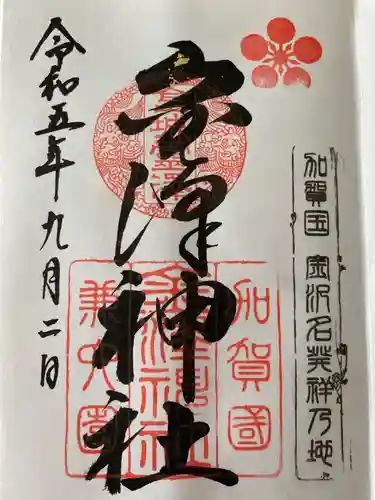 加賀国 金沢名発祥乃地
金澤神社
令和五年九月二日
加賀國
金澤神社
兼六園